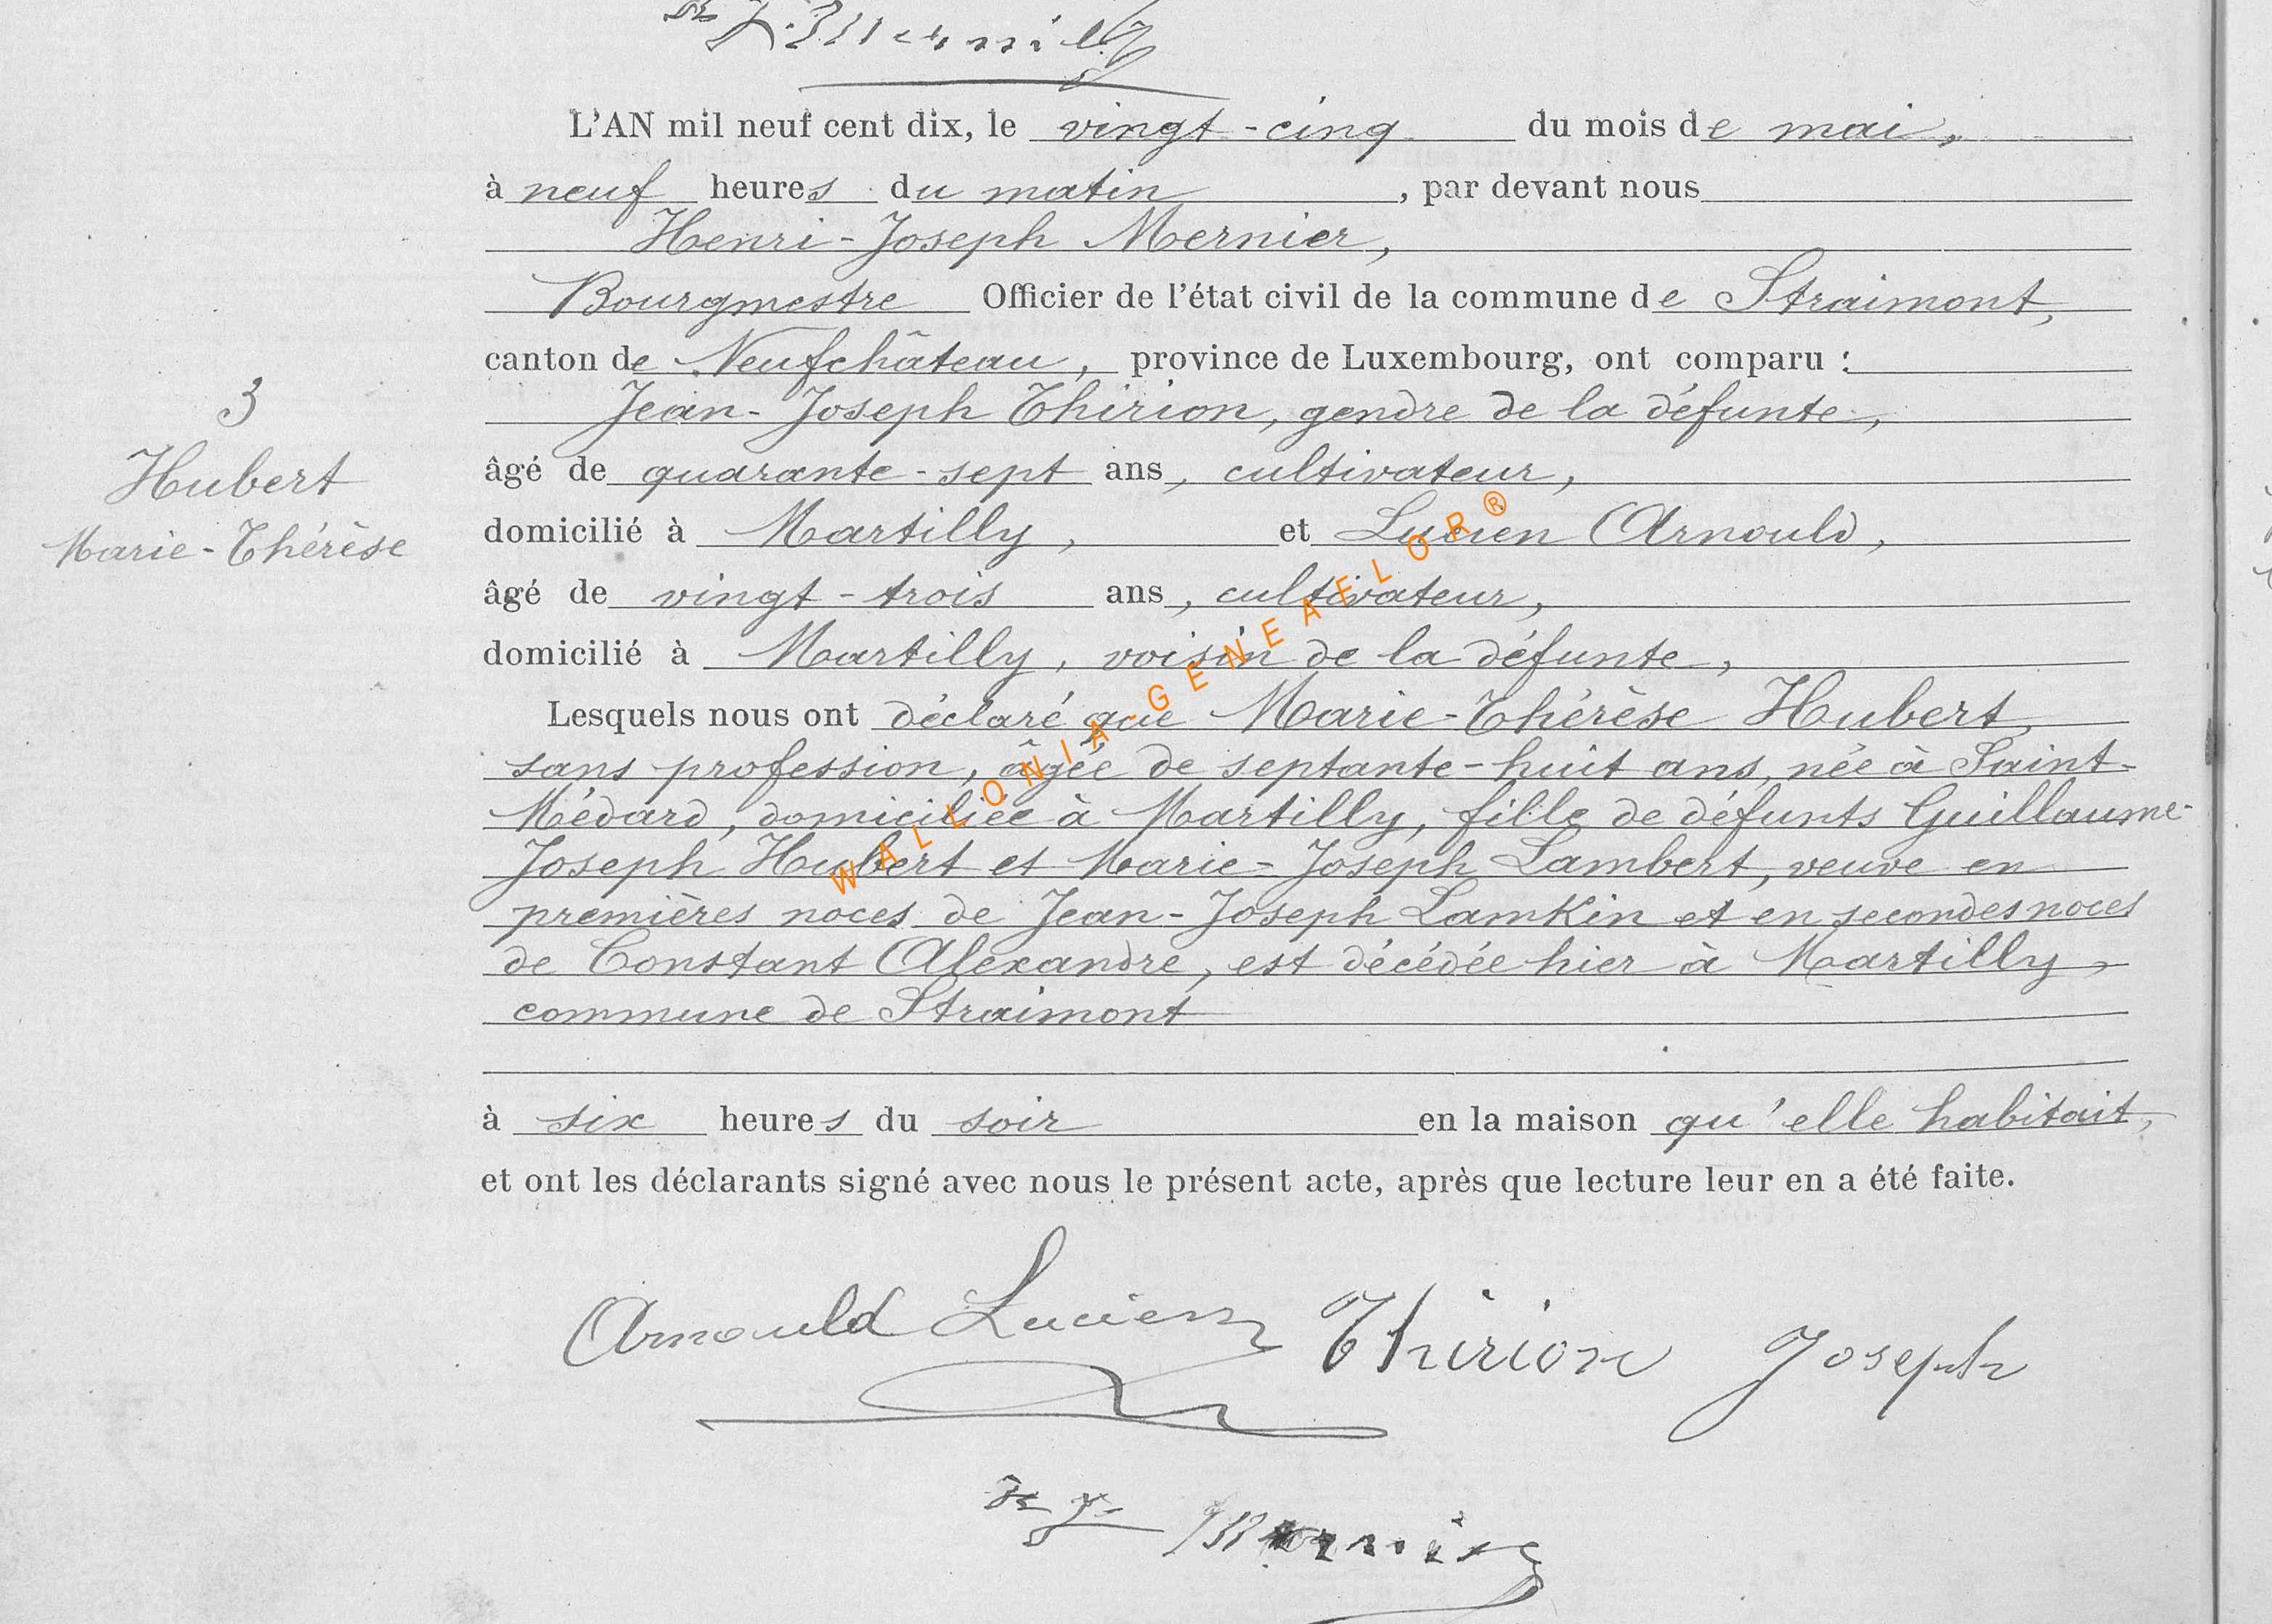 L'AN mil neuf cent dix, le vingt-cinq du mois de mai,
à neuf heures du matin, par devant nous
Henri-Joseph Mernier,
Bourgmestre Officier de l'état civil de la commune de Straimont,
canton de Neufchâteau, province de Luxembourg, ont comparu :
Jean-Joseph Thirion, gendre de la défunte,
âgé de quarante-sept ans, cultivateur,
domicilié à Martilly, et Lucien Arnould,
âgé de vingt-trois ans, cultivateur,
domicilié à Martilly, voisin de la défunte,
Lesquels nous ont déclaré que Marie-Thérèse Hubert,
sans profession, âgée de septante-huit ans, née à Saint-
Médard, domiciliée à Martilly, fille de défunts Guillaume-
Joseph Hubert et Marie-Joseph Lambert, veuve en
premières noces de Jean-Joseph Lamkin et en secondes noces
de Constant Alexandre, est décédée hier à Martilly,
commune de Straimont
à six heures du soir en la maison qu'elle habitait,
et ont les déclarants signé avec nous le présent acte, après que lecture leur en a été faite.
3
Hubert
Marie-Thérèse
Arnould Lucien Thirion Joseph
Mernier
WALLONIA-GENEAFLOR®